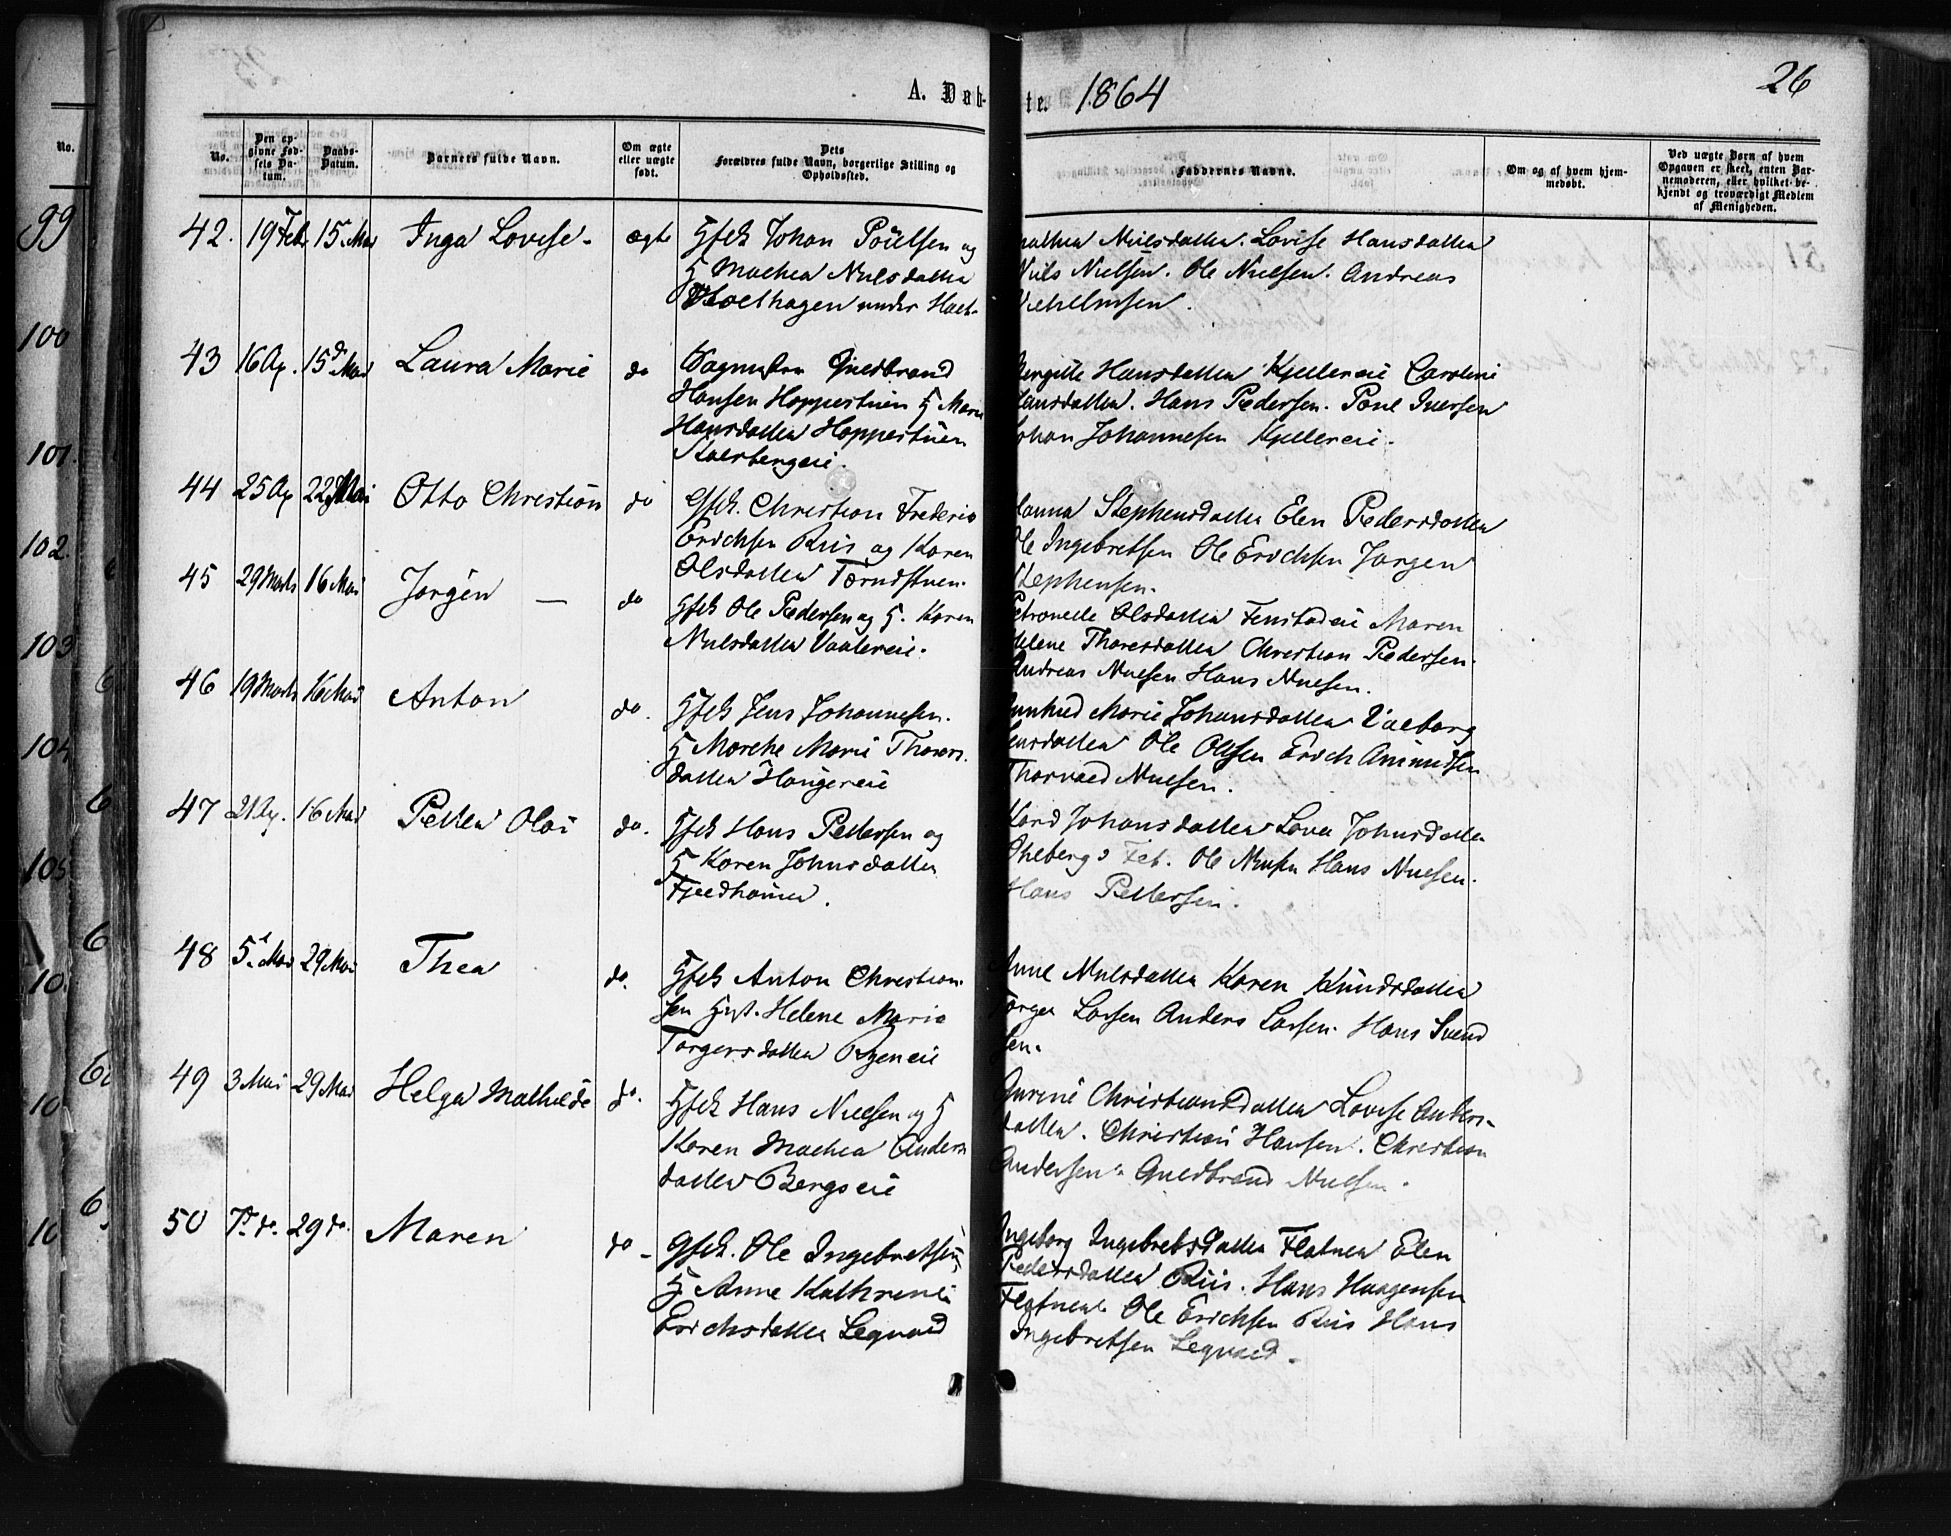 26
A. Døb- te. 1864
No.
Den opgivne Fødsels Datum.
Daabs-Datum.
Barnets fulde Navn.
Om ægte eller uægte født.
Dets Forældres fulde Navn, borgerlige Stilling og Opholdssted.
Faddernes Navne.
Om og af hvem hjemmedøbt.
Ved uægte Børn af hvem Opgaven er skeet, enten Barnemoderen, eller hvilket bekjendt og troværdigt Medlem af Menigheden.
42. 19 Feb 15 Mai Inga Lovise - ægte Gfck Johan Poulsen og
G Mathea Nielsdatter
under
Nielsdatter. Lovise Hansdatter
Niels Nielsen. Ole Nielsen. Andreas
43 16 Ap. 15 Mai Laura Marie do Guldbrand
Hansen Hoppestuen G Marie
Hansdatter Hoppestuen
Hansdatter Kjellereie Caroline
Hansdatter. Hans Pedersen. Poul Iversen
Johan Johannesen Kjellereie.
44 25 Ap 22 Mai Otto Christian do Gfck. Christian Frederic
Erichsen Riis og Karen
Olsdatter
Hanna Stephensdatter Elen Pedersdatter
Ole Ingebretsen Ole Erichsen Jørgen
Stephensen.
45 29 Marts 16 Mai Jørgen - do Gfck Ole Pedersen og G. Karen
Nielsdatter Vaalereie.
Petronelle Olsdatter Fenstadeie Maren
Helene Thoresdatter Christian Pedersen.
Andreas Nielsen Hans Nielsen.
46 19 Marts 16 Mai Anton do. Gfck Jens Johannesen.
G Marthe Marie Thores-
datter Haugereie
Gunhild Marie Johansdatter Valborg
Jensdatter Ole Olsen Erich Amundsen
Thorvald Nielsen.
47 21 Ap. 16 Mai Petter Olai do. Gfck Hans Pettersen og
G Karen Johnsdatter
Kari Johansdatter Lova Johnsdatter
Ole Nielsen Hans Nielsen.
Hans Pettersen.
48 5 Mai 29 Mai Thea do. Gfck Anton Christian-
sen Gust. Helene Marie
Torgersdatter
Anne Nielsdatter Karen Knudsdatter
Torger Larsen Anders Larsen. Hans Svend
sen.
49 3 Mai 29 Mai Helga Mathilde do. Gfck Hans Nielsen og G
Karen Mathea Anders
datter Bergseie
Gurine Christiansdatter Lovise Anders-
datter. Christian Hansen. Christian
Andersen. Guldbrand Nielsen.
50 7de do. 29 do. Maren do - Gfck. Ole Ingebretsen
G Anne Kathrine
Erichsdatter Legvald
Ingeborg Ingebretsdatter Flatner Elen
Pedersdatter Riis. Hans Haagensen
Flatner. Ole Erichsen Riis Hans
Ingebretsen Legvald.
No.
99
100
101.
102.
103
104
105
10.
10
10